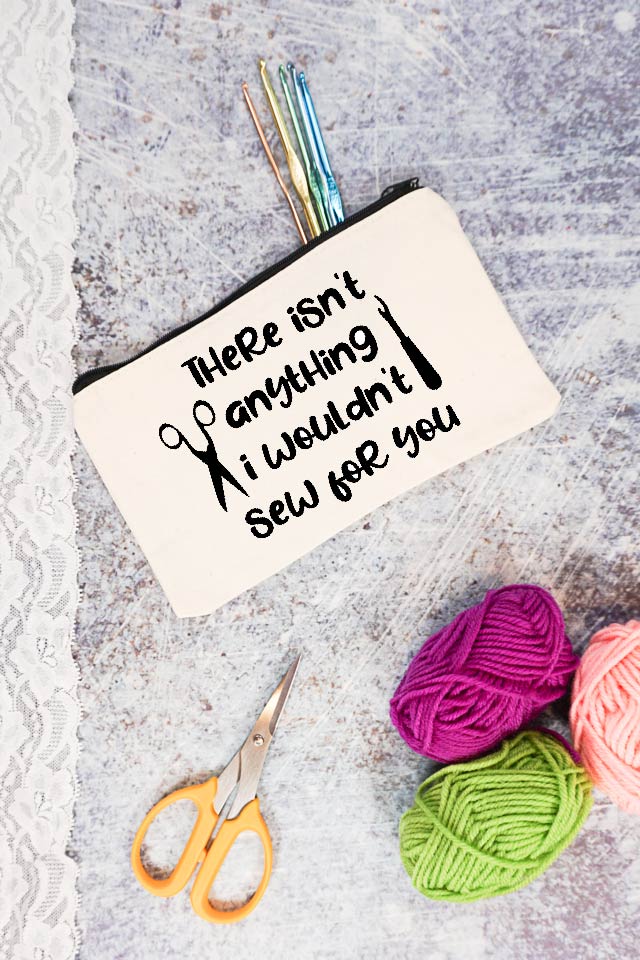 THeRe isn't
anytHing
i wouldn't
sew foR you